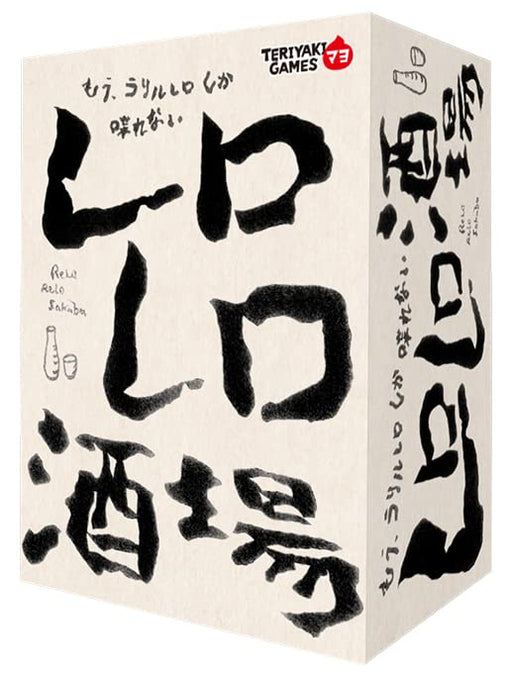 TERIYAKI
GAMES マヨ
もう、ラリルレロしか
喋れない
レロ
レロ
酒場
ReLo
ReLo
Sakaba
レロレロ酒場
ReLo
ReLo
Sakaba
もう、ラリルレロしか 喋れない